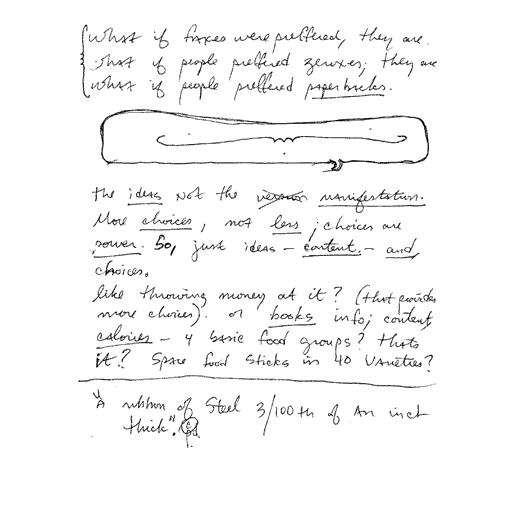 What if faxes were preffered, they are.
what if people preffered xeroxes; they are
what if people preffered paperbacks.
the ideas not the version manifestation.
More choices, not less; choices are
power. So, just ideas – content, – and,
choices.
like throwing money at it? (that provides
more choices). or books info; content,
calories – 4 basic food groups? thats
it? Space food sticks in 40 varieties?
"A ribbon of Steel 3/100th of an inch
thick".